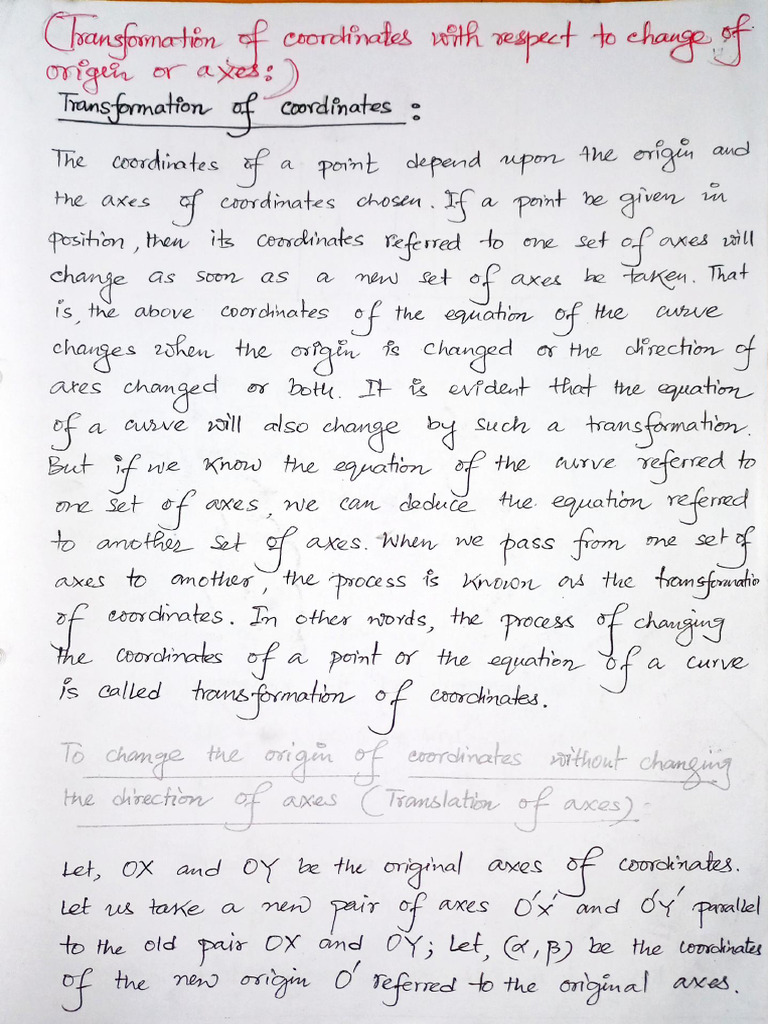 (Transformation of coordinates with respect to change of
origin or axes:)
Transformation of coordinates :
The coordinates of a point depend upon the origin and
the axes of coordinates chosen. If a point be given in
position, then its coordinates referred to one set of axes will
change as soon as a new set of axes be taken. That
is, the above coordinates of the equation of the curve
changes when the origin is changed or the direction of
axes changed or both. It is evident that the equation
of a curve will also change by such a transformation.
But if we know the equation of the curve referred to
one set of axes, we can deduce the equation referred
to another set of axes. When we pass from one set of
axes to another, the process is known as the transformatio
of coordinates. In other words, the process of changing
the coordinates of a point or the equation of a curve
is called transformation of coordinates.
To change the origin of coordinates without changing
the direction of axes (Translation of axes):-
Let, OX and OY be the original axes of coordinates.
Let us take a new pair of axes O'X' and O'Y' parallel
to the old pair OX and OY; Let, (α, β) be the coordinates
of the new origin O' referred to the original axes.